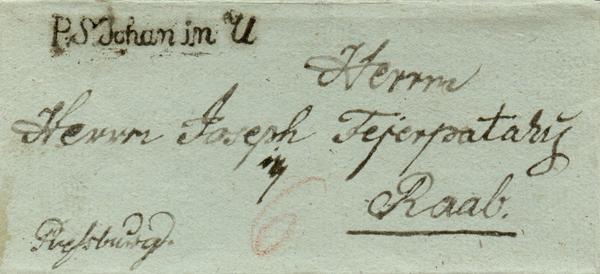 P.S Johan in U
Herrn
Herrn Joseph Fejerpataky
in
Raab.
6
Presburg.